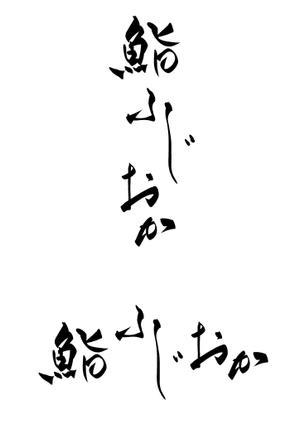 鮨ふじおか
鮨ふじおか